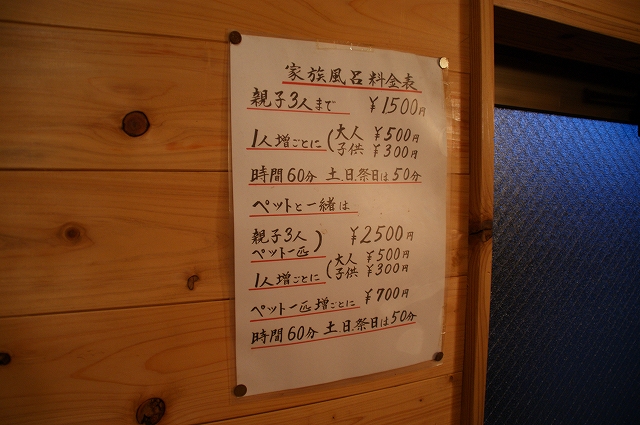 家族風呂料金表
親子3人まで ¥1500円
1人増ごとに (大人 ¥500円
子供 ¥300円
時間60分 土.日.祭日は50分
ペットと一緒は
親子3人 ) ¥2500円
ペット一匹
1人増ごとに (大人 ¥500円
子供 ¥300円
ペット一匹増ごとに ¥700円
時間60分 土.日.祭日は50分